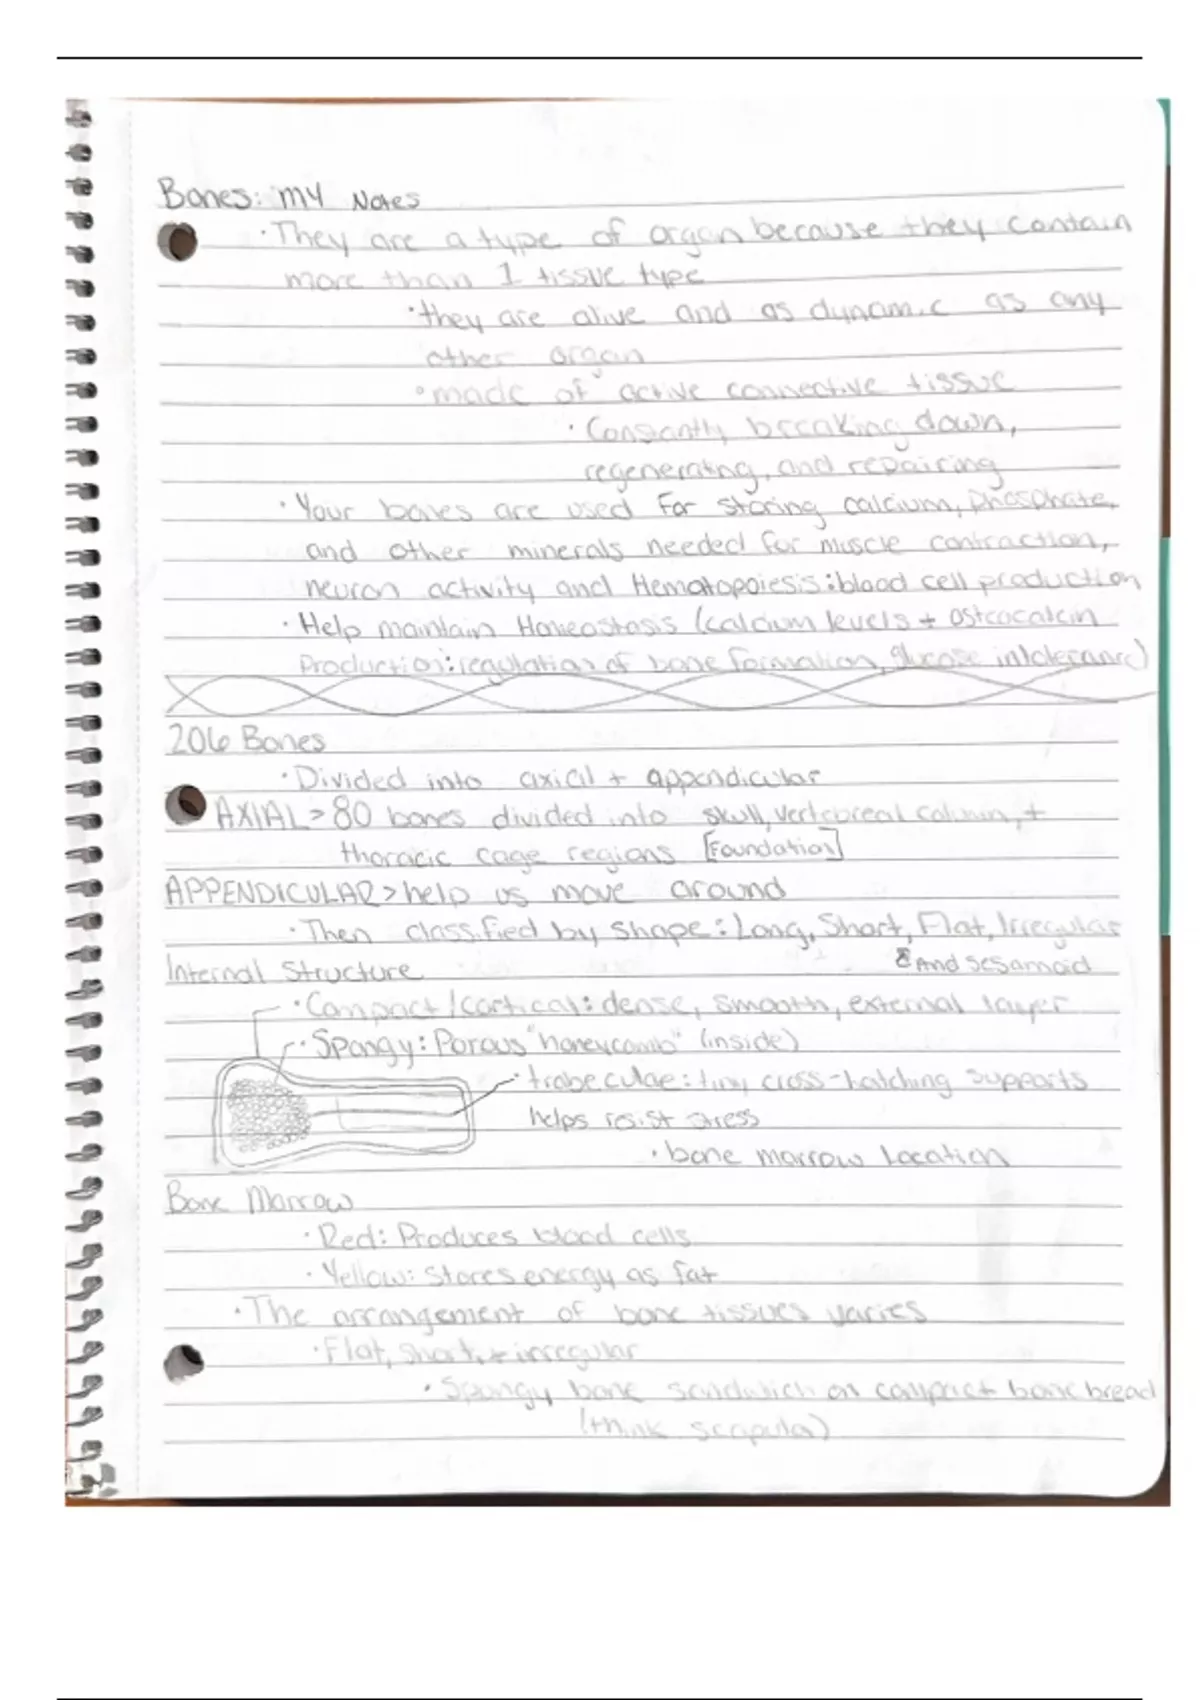 Bones: MY Notes
· They are a type of organ because they contain
more than 1 tissue type
· they are alive and as dynamic as any
other organ
· made of active connective tissue
· Constantly breaking down,
regenerating, and repairing
· Your bones are used for storing calcium, phosphate,
and other minerals needed for muscle contraction,
neuron activity and Hematopoiesis: blood cell production
· Help maintain Homeostasis (calcium levels + osteocalcin
Production: regulation of bone formation, glucose intolerance)
206 Bones
· Divided into axial + appendicular
AXIAL > 80 bones divided into skull, vertebreal column, +
thoracic cage regions [Foundation]
APPENDICULAR > help us move around
· Then classified by shape: Long, Short, Flat, Irregular
& And sesamoid
Internal Structure
· Compact/cortical: dense, smooth, external layer
· Spongy: Porous "honeycomb" (inside)
· trabeculae: tiny cross-hatching supports
helps resist stress
· bone marrow location
Bone Marrow
· Red: Produces blood cells
· Yellow: Stores energy as fat
· The arrangement of bone tissues varies
· Flat, short, + irregular
· Spongy bone sandwich on compact bone bread
(think scapula)